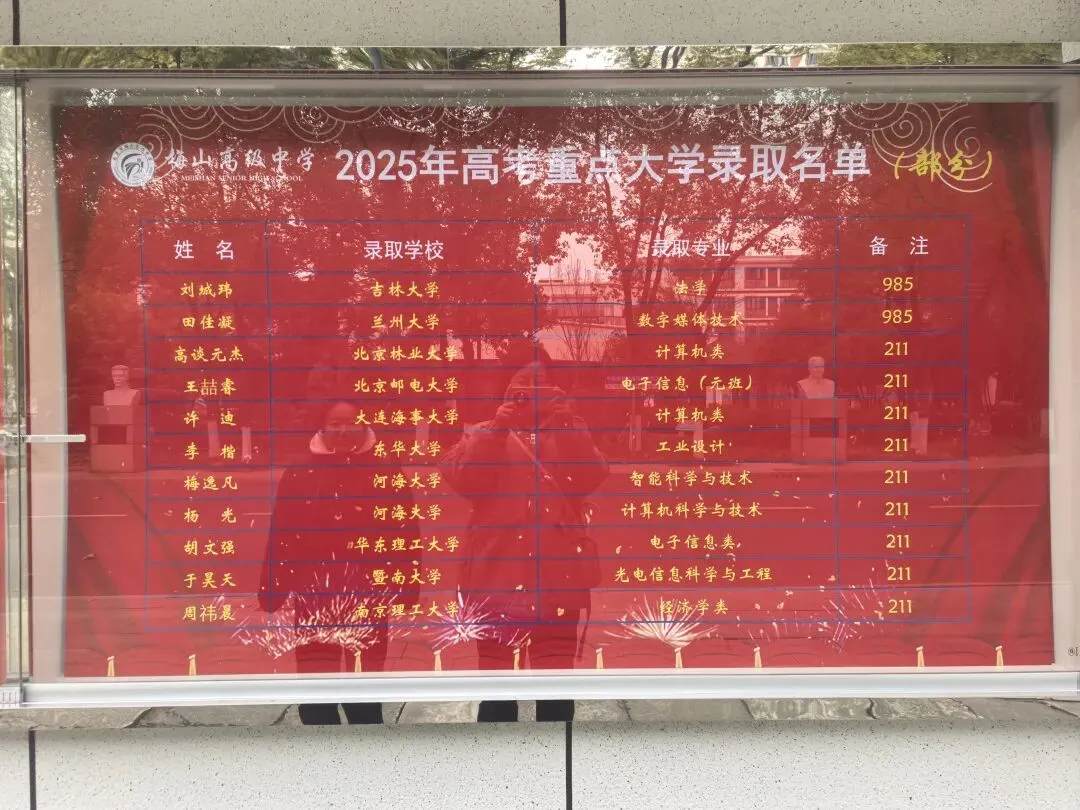 梅山高级中学 2025年高考重点大学录取名单（部分）
MEISHAN SENIOR HIGH SCHOOL
姓 名 录取学校 录取专业 备 注
刘城玮 吉林大学 法学 985
田佳凝 兰州大学 数字媒体技术 985
高谈元杰 北京林业大学 计算机类 211
王喆睿 北京邮电大学 电子信息（元班） 211
许 迪 大连海事大学 计算机类 211
李 楷 东华大学 工业设计 211
梅逸凡 河海大学 智能科学与技术 211
杨 光 河海大学 计算机科学与技术 211
胡文强 华东理工大学 电子信息类 211
于昊天 暨南大学 光电信息科学与工程 211
周祎晨 南京理工大学 经济学类 211